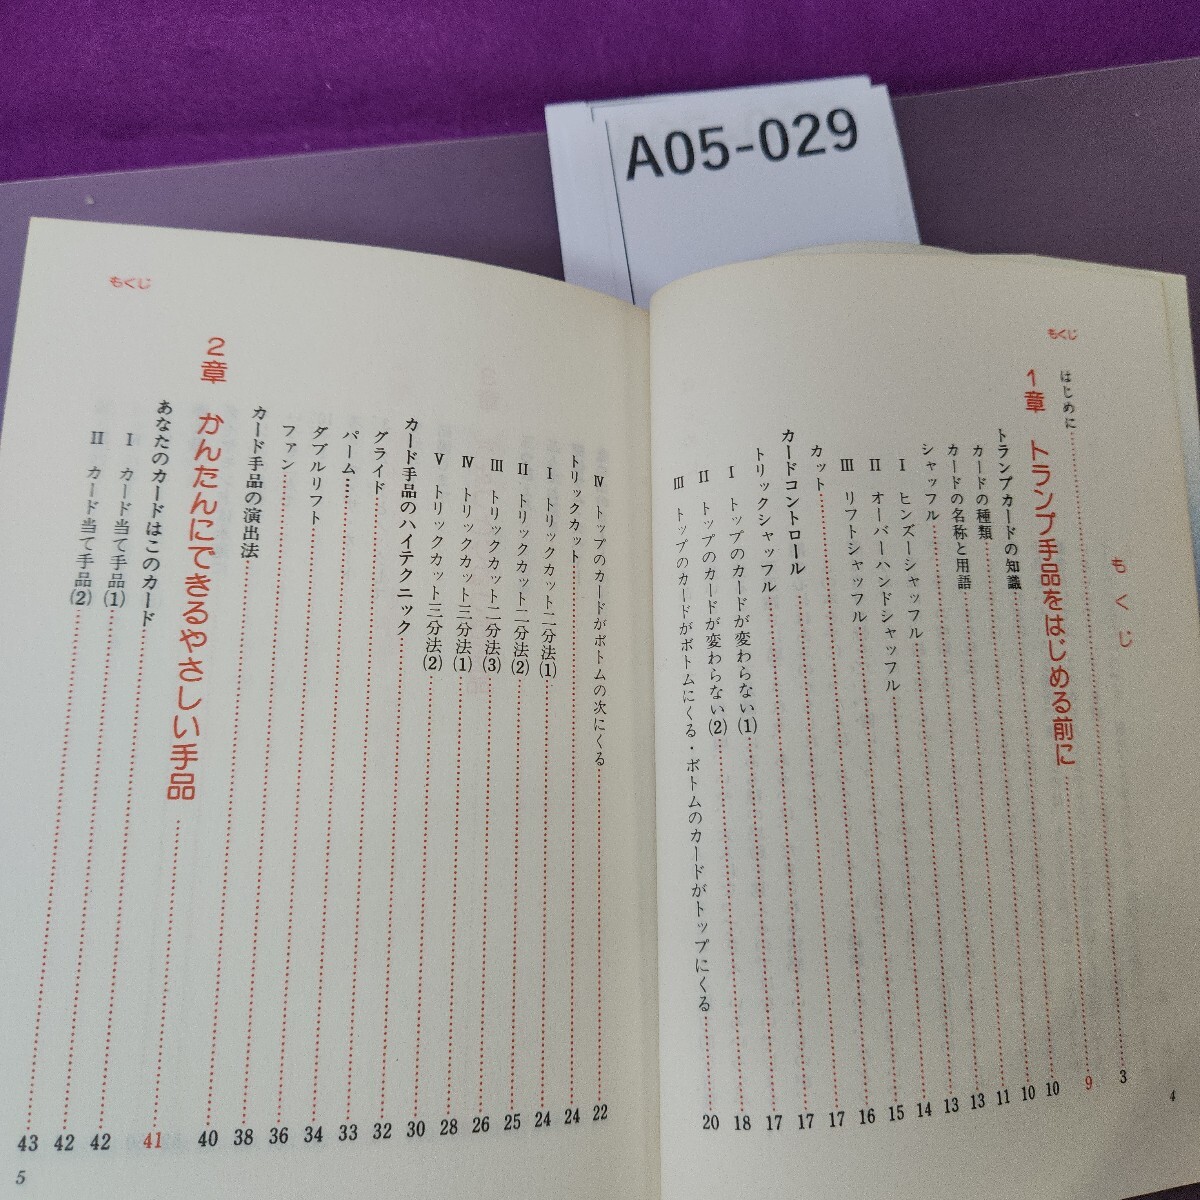 A05-029
もくじ
もくじ
はじめに……3
1章 トランプ手品をはじめる前に……9
トランプカードの知識……10
カードの種類……10
カードの名称と用語……11
シャッフル……13
Ⅰ ヒンズーシャッフル……13
Ⅱ オーバーハンドシャッフル……14
Ⅲ リフトシャッフル……15
カット……16
カードコントロール……17
トリックシャッフル……17
Ⅰ トップのカードが変わらない(1)……17
Ⅱ トップのカードが変わらない(2)……18
Ⅲ トップのカードがボトムにくる・ボトムのカードがトップにくる……20
4
もくじ
Ⅳ トップのカードがボトムの次にくる……22
トリックカット……24
Ⅰ トリックカット二分法(1)……24
Ⅱ トリックカット二分法(2)……25
Ⅲ トリックカット二分法(3)……26
Ⅳ トリックカット三分法(1)……28
Ⅴ トリックカット三分法(2)……30
カード手品のハイテクニック……32
グライド……33
パーム……34
ダブルリフト……36
ファン……38
カード手品の演出法……40
2章 かんたんにできるやさしい手品……41
あなたのカードはこのカード……42
Ⅰ カード当て手品(1)……42
Ⅱ カード当て手品(2)……43
5